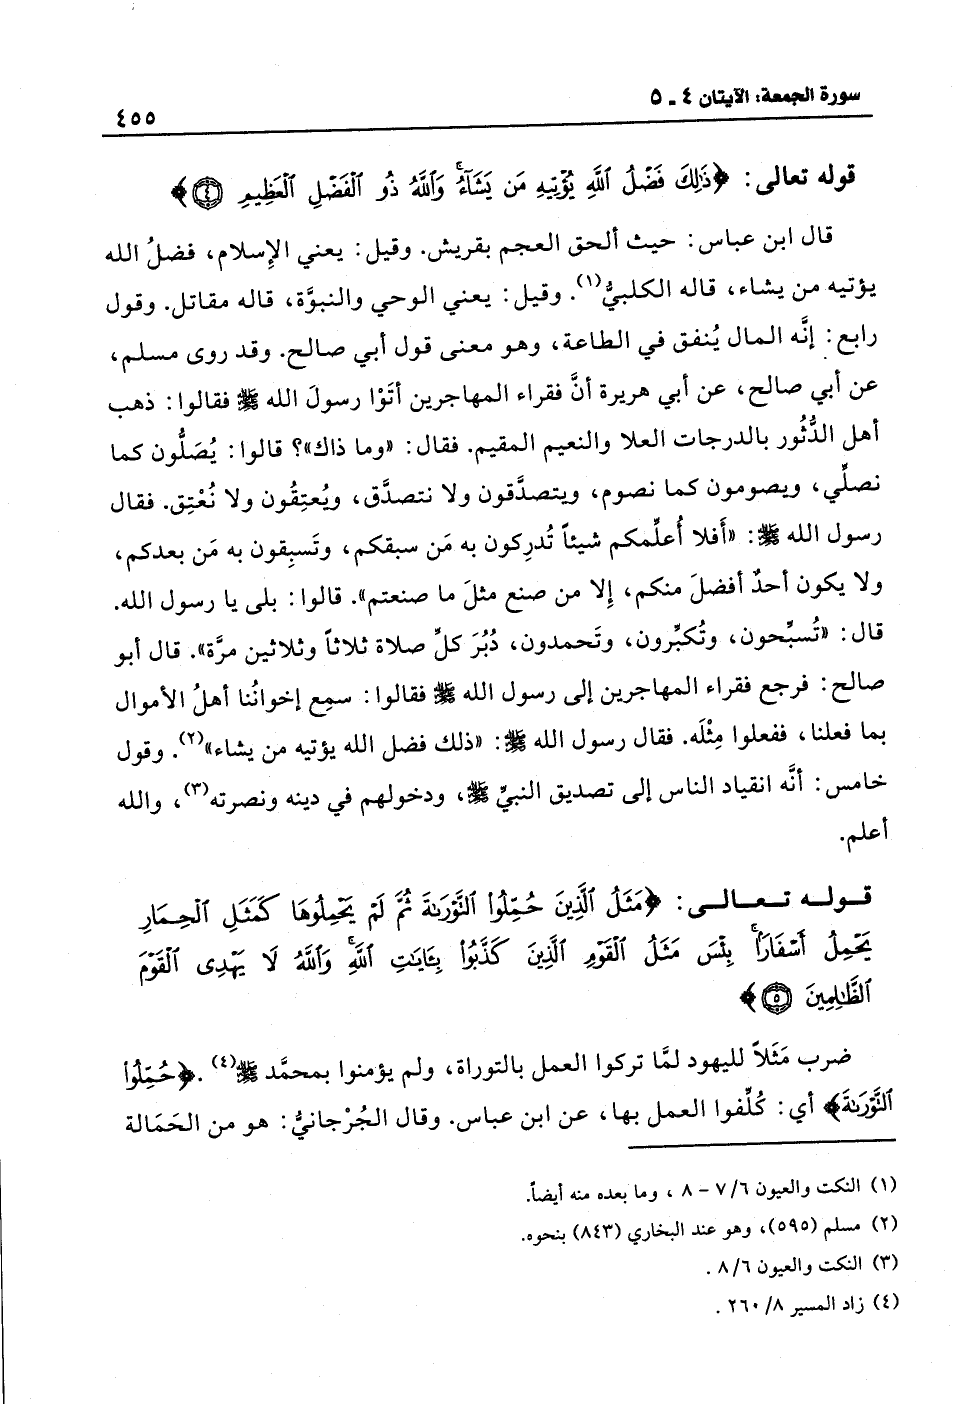 سورة الجمعة: الآيتان ٤ ـ ٥
٤٥٥
قوله تعالى: ﴿ذَٰلِكَ فَضْلُ ٱللَّهِ يُؤْتِيهِ مَن يَشَآءُ ۚ وَٱللَّهُ ذُو ٱلْفَضْلِ ٱلْعَظِيمِ ٤﴾
قال ابن عباس: حيث ألحق العجم بقريش. وقيل: يعني الإسلام، فضلُ الله
يؤتيه من يشاء، قاله الكلبيُّ(١). وقيل: يعني الوحي والنبوَّة، قاله مقاتل. وقول
رابع: إنَّه المال يُنفق في الطاعة، وهو معنى قول أبي صالح. وقد روى مسلم،
عن أبي صالح، عن أبي هريرة أنَّ فقراء المهاجرين أتَوْا رسولَ الله ﷺ فقالوا: ذهب
أهل الدُّثُور بالدرجات العلا والنعيم المقيم. فقال: «وما ذاك»؟ قالوا: يُصَلُّون كما
نصلِّي، ويصومون كما نصوم، ويتصدَّقون ولا نتصدَّق، ويُعتِقُون ولا نُعْتِق. فقال
رسول الله ﷺ: «أَفلا أُعلِّمكم شيئاً تُدرِكون به مَن سبقكم، وتَسبِقون به مَن بعدكم،
ولا يكون أحدٌ أفضلَ منكم، إلا من صنع مثلَ ما صنعتم». قالوا: بلى يا رسول الله.
قال: «تُسبِّحون، وتُكبِّرون، وتَحمدون، دُبُرَ كلِّ صلاة ثلاثاً وثلاثين مرَّة». قال أبو
صالح: فرجع فقراء المهاجرين إلى رسول الله ﷺ فقالوا: سمِع إخوانُنا أهلُ الأموال
بما فعلنا، ففعلوا مِثْلَه. فقال رسول الله ﷺ: «ذلك فضل الله يؤتيه من يشاء»(٢). وقول
خامس: أنَّه انقياد الناس إلى تصديق النبيِّ ﷺ، ودخولهم في دينه ونصرته(٣)، والله
أعلم.
قوله تعالى: ﴿مَثَلُ ٱلَّذِينَ حُمِّلُوا۟ ٱلتَّوْرَىٰةَ ثُمَّ لَمْ يَحْمِلُوهَا كَمَثَلِ ٱلْحِمَارِ
يَحْمِلُ أَسْفَارًۢا ۚ بِئْسَ مَثَلُ ٱلْقَوْمِ ٱلَّذِينَ كَذَّبُوا۟ بِـَٔايَٰتِ ٱللَّهِ ۚ وَٱللَّهُ لَا يَهْدِى ٱلْقَوْمَ
ٱلظَّٰلِمِينَ ٥﴾
ضرب مَثَلاً لليهود لمَّا تركوا العمل بالتوراة، ولم يؤمنوا بمحمَّد ﷺ(٤). ﴿حُمِّلُوا۟
ٱلتَّوْرَىٰةَ﴾ أي: كُلِّفوا العمل بها، عن ابن عباس. وقال الجُرْجانيُّ: هو من الحَمَالة
(١) النكت والعيون ٦/٧ - ٨، وما بعده منه أيضاً.
(٢) مسلم (٥٩٥)، وهو عند البخاري (٨٤٣) بنحوه.
(٣) النكت والعيون ٦/٨.
(٤) زاد المسير ٨/٢٦٠.